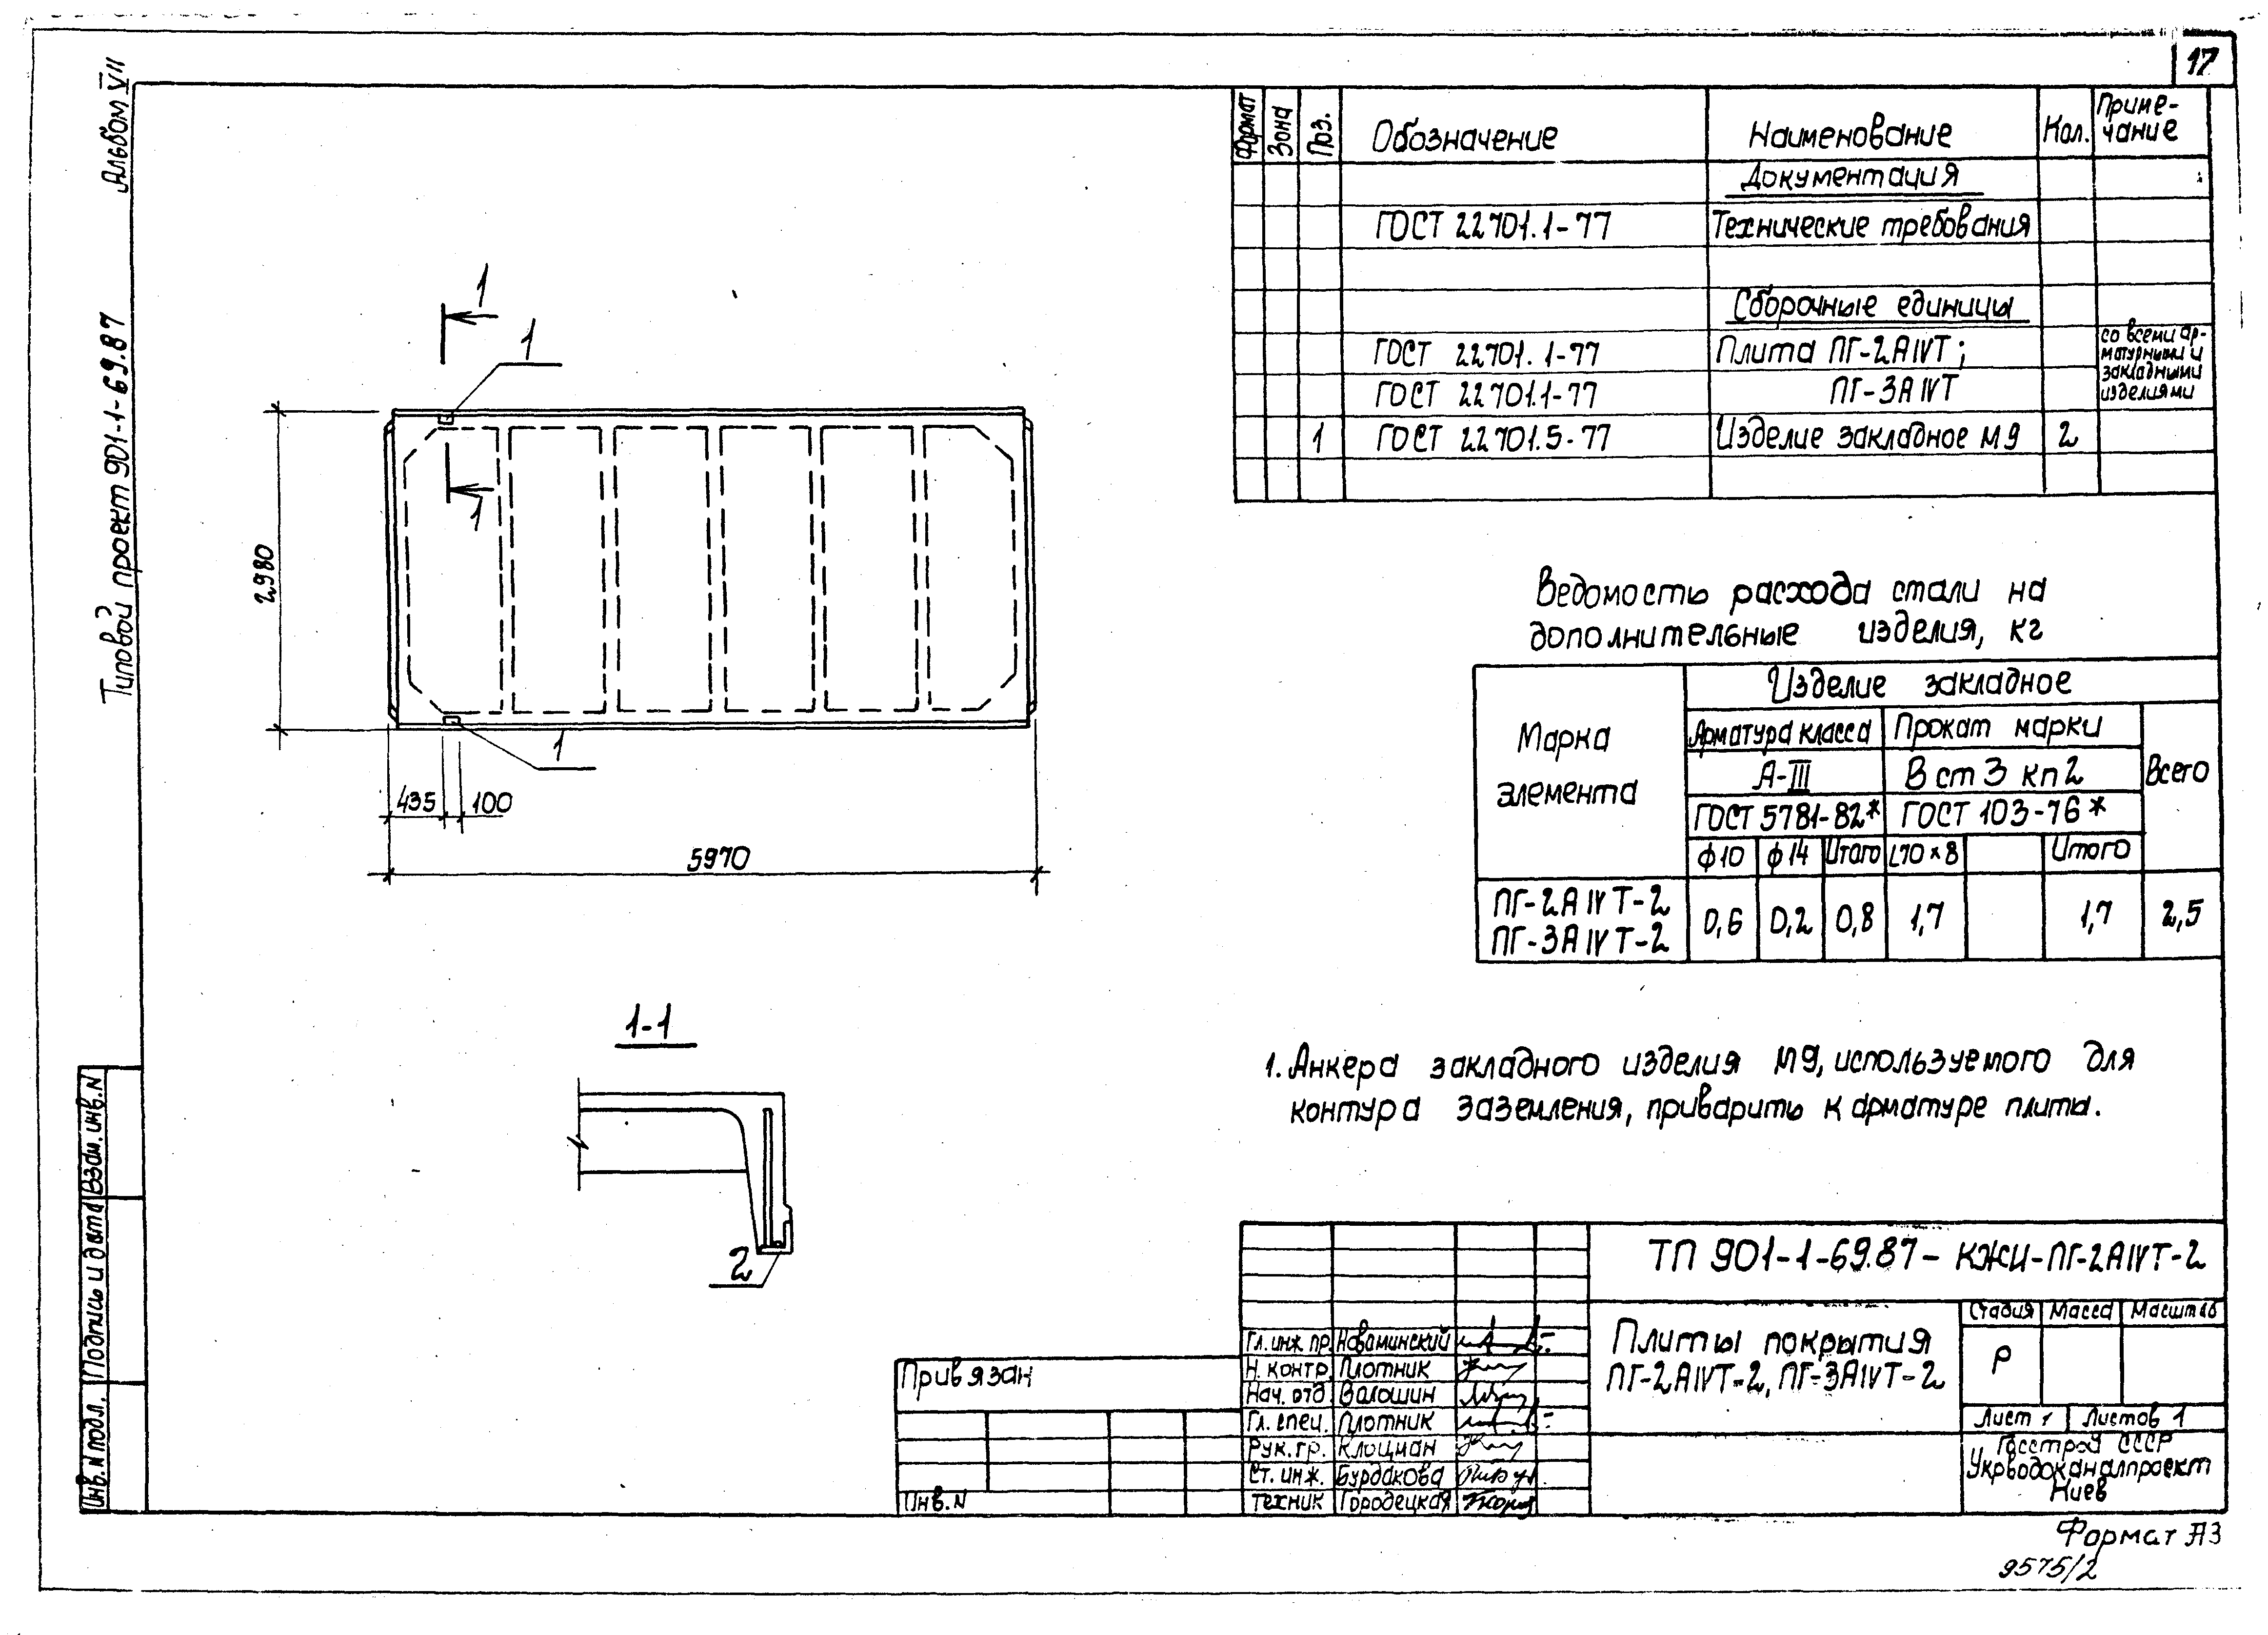 17
Альбом VII
Типовой проект 901-1-69.87
Формат
Зона
Поз.
Обозначение
Наименование
Кол.
Приме-
чание
Документация
ГОСТ 22701.1-77
Технические требования
Сборочные единицы
ГОСТ 22701.1-77
Плита ПГ-2АIVТ;
со всеми ар-
матурными и
закладными
изделиями
ГОСТ 22701.1-77
ПГ-3АIVТ
1
ГОСТ 22701.5-77
Изделие закладное М9
2
1
1
1
1
2980
435
100
5970
Ведомость расхода стали на
дополнительные изделия, кг
Марка
элемента
Изделие закладное
Арматура класса
Прокат марки
Всего
А-III
В ст 3 кп 2
ГОСТ 5781-82*
ГОСТ 103-76*
ф10
ф14
Итого
L70×8
Итого
ПГ-2АIVТ-2
ПГ-3АIVТ-2
0,6
0,2
0,8
1,7
1,7
2,5
1-1
2
1. Анкера закладного изделия М9, используемого для
контура заземления, приварить к арматуре плиты.
Взам. инв. N
Подпись и дата
Инв. N подл.
Привязан
Инв. N
ТП 901-1-69.87- КЖИ-ПГ-2АIVТ-2
Гл. инж. пр. Новаминский
Н. контр. Плотник
Нач. отд Волошин
Гл. спец. Плотник
Рук. гр. Клоцман
Ст. инж. Бурдакова
техник Городецкая
Плиты покрытия
ПГ-2АIVТ-2, ПГ-3АIVТ-2
Стадия
Масса
Масштаб
Р
Лист 1
Листов 1
Госстрой СССР
Укрводоканалпроект
Киев
Формат А3
9575/2